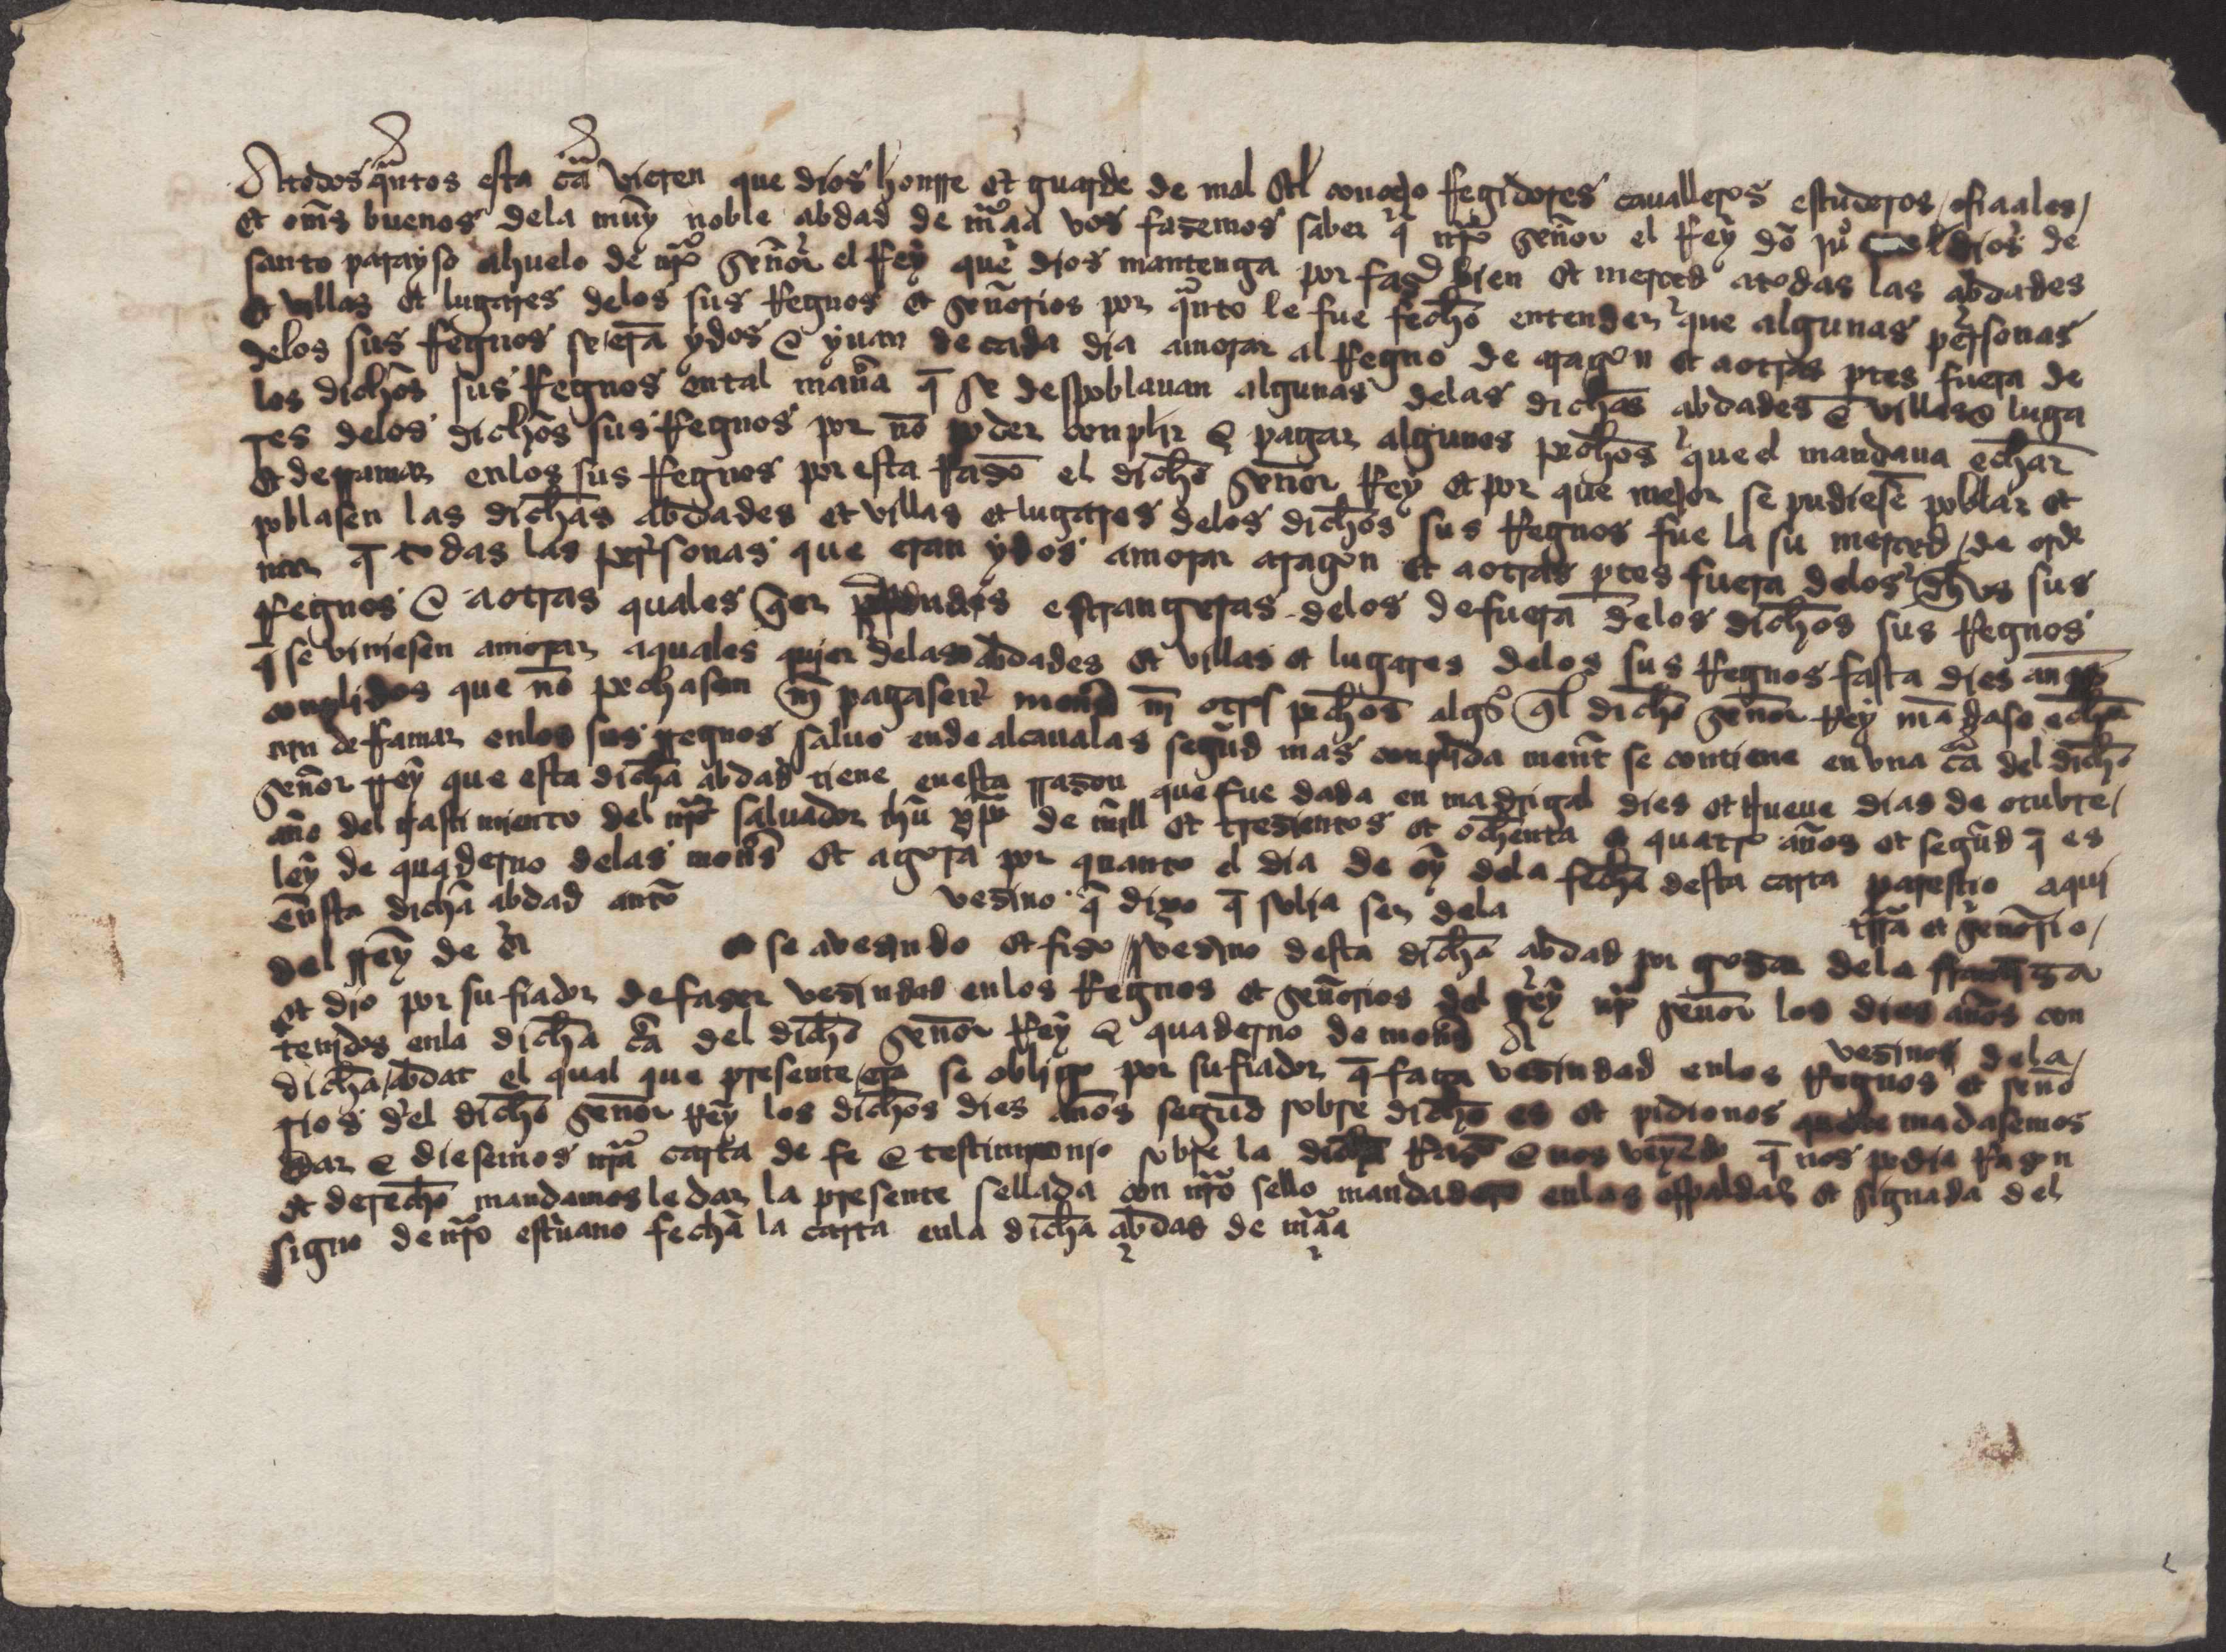 A todos q̃ntos esta cã vieren que dios honrre et guarde de mal El conçejo Regidores cavalleros escuderos / ofiçiales /
et om̃s buenos dela muy noble çibdad de murçia vos fasemos saber q̃ nr̃o señor el Rey dõ juº dios de
santo parayso ahuelo de nr̃o señor el Rey que dios mantenga por faser bien et merçed a todas las çibdades
et villas et lugares delos sus Regnos et señorios por q̃nto le fue fecho entender que algunas personas
delos sus Regnos se erã ydos e yuan de cada dia amorar al Regno de aragon et aotras ptes fuera de
los dichos sus Regnos en tal mañra q̃ se despoblauan algunas delas dichas çibdades e villas e luga
res delos dichos sus Regnos por nõ poder conplir e pagar algunos pechos que el mandaua echar
et derramar enlos sus Regnos por esta Rasõ el dicho señor Rey et por que mejor se pudiesẽ poblar et
poblasen las dichas çibdades et villas et lugares delos dichos sus Regnos fue la su merçed / de orde
nar q̃ todas las personas que eran ydos amorar aragon et aotras ptes fuera delos dh̃os sus
Regnos e aotras quales q̃er personas estrangeras delos de fuera delos dichos sus Regnos
q̃ se viniesen amorar aquales quier delas çibdades et villas et lugares delos sus Regnos fasta dies años
conplidos que nõ pechasen nj̃ pagasen moñd nj̃ otros pechos algũos q̃l dicho señor Rey mãdase echar
njn deRamar enlos sus rregnos saluo ende alcaualas segũd mas conplida ment̃ se contiene en vna cã del dicho
señor rrey que esta dicha çibdad tiene en esta rrason que fue dada en madrigal dies et nueue dias de otubre /
año del nasçimiento del nr̃o saluador ihũ xp̃o de mjll et tresientos et ochenta et quatro años et segũd q̃ es
ley de quaderno delas moñds Et agora por quanto el dia de oy dela fecha desta carta paresçio aqui
en esta dicha çibdad antõ vesino q̃ dixo q̃ solia ser dela trr̃a et señorio /
del rrey de se avesindo et fiso vesino desta dicha çibdad por gosar dela franq̃sa
et dio por su fiador de faser vesindad enlos Regnos et señorios del rrey nr̃o señor los dies años con
tenjdos enla dicha cã del dicho señor Rey e quaderno de moñd A vesinos dela /
dicha çibdat el qual que presente era se obligo por su fiador q̃ fara vesindad enlos Regnos et seño
rios del dicho señor Rey los dichos dies años segũd sobre dicho es et pidionos que le mãdasemos
dar e diesemos nr̃a carta de fe e testimonjo sobre la dicha Rasõ e nos veyẽdo q̃ nos pedia Rason
et derecho mandamosle dar la presente sellada con nr̃o sello mandadero enlas espaldas et signada del
signo de nr̃o escriuano fecha la carta enla dicha çibdad de murçia